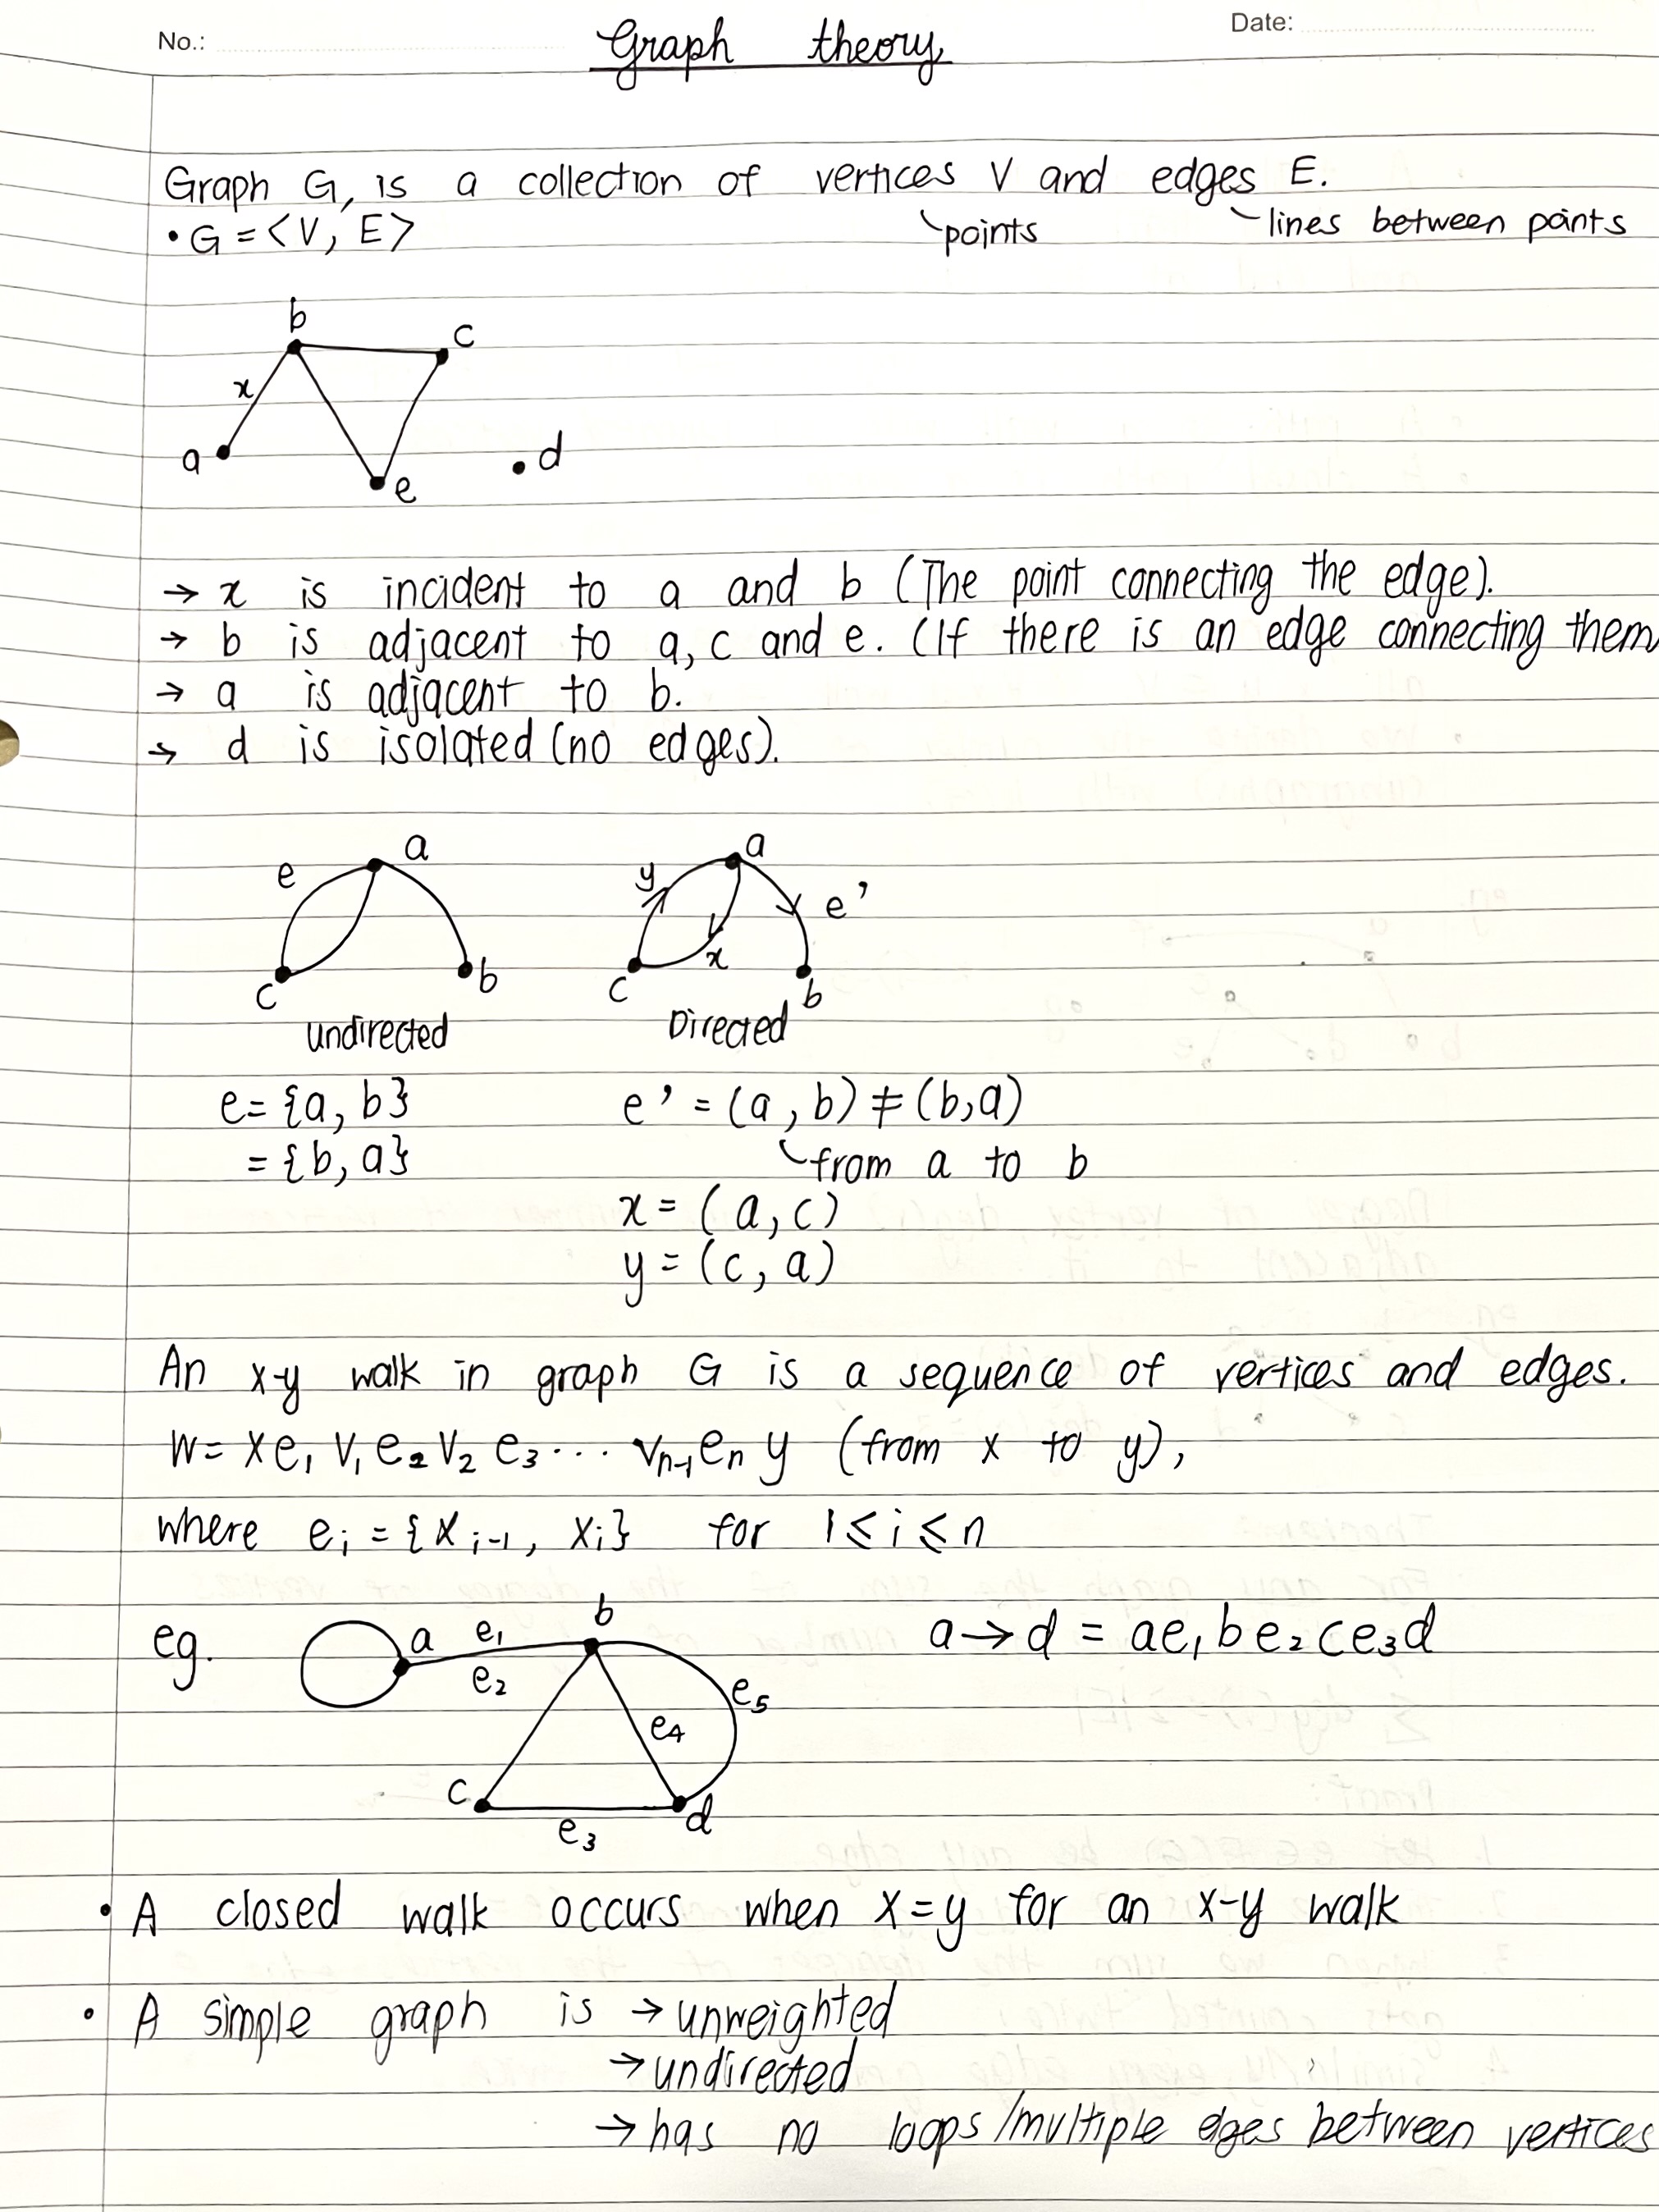 No.: Graph theory Date:
Graph G, is a collection of vertices V and edges E.
• G = <V, E> points lines between points
b
c
x
a
e
d
→ x is incident to a and b (The point connecting the edge).
→ b is adjacent to a, c and e. (If there is an edge connecting them
→ a is adjacent to b.
→ d is isolated (no edges).
a a
e y e'
x
c b c b
undirected Directed
e = {a, b} e' = (a, b) ≠ (b,a)
= {b, a} from a to b
x = (a, c)
y = (c, a)
An x-y walk in graph G is a sequence of vertices and edges.
W = x e₁ v₁ e₂ v₂ e₃ ... vₙ₋₁ eₙ y (from x to y),
where eᵢ = {xᵢ₋₁, xᵢ} for 1 ≤ i ≤ n
eg. a e₁ b a → d = ae₁be₂ce₃d
e₂ e₅
e₄
c d
e₃
• A closed walk occurs when x=y for an x-y walk
• A simple graph is → unweighted
→ undirected
→ has no loops/multiple edges between vertices